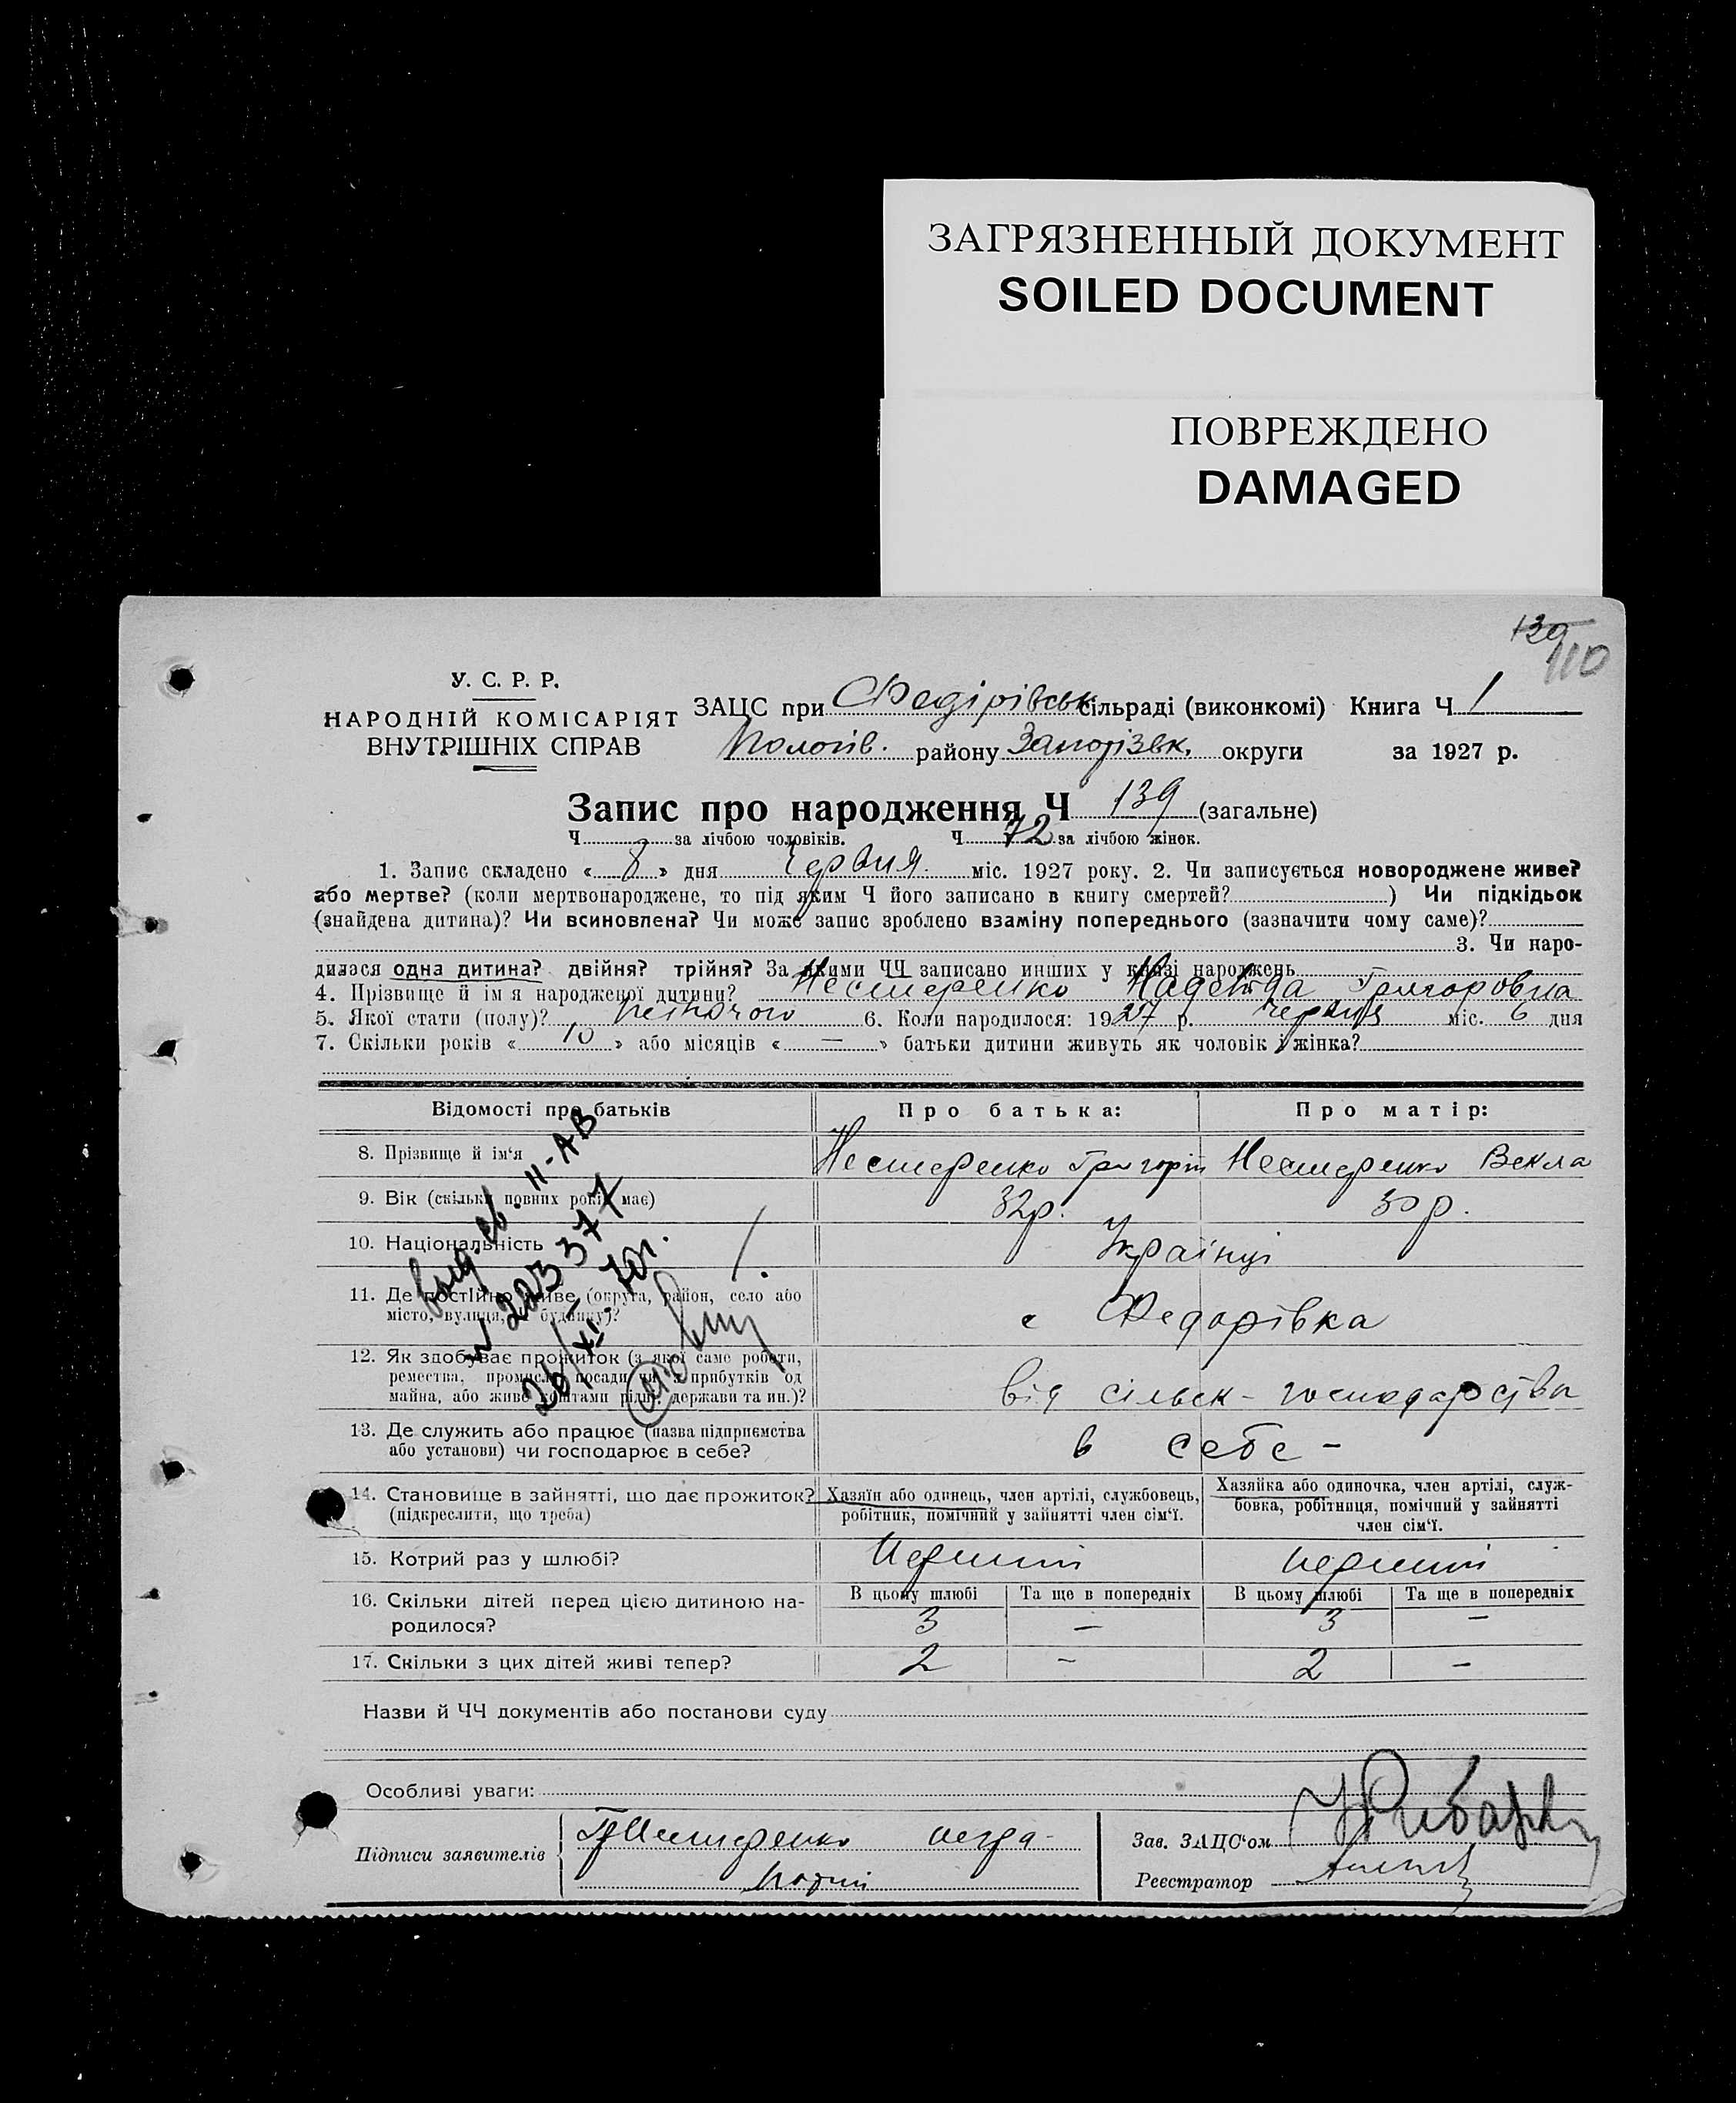 ЗАГРЯЗНЕННЫЙ ДОКУМЕНТ
SOILED DOCUMENT
ПОВРЕЖДЕНО
DAMAGED
139
110
У. С. Р. Р.
НАРОДНІЙ КОМІСАРІЯТ
ВНУТРІШНІХ СПРАВ
ЗАЦС при Федірівськ сільраді (виконкомі) Книга Ч 1
Пологів. району Запорізьк. округи за 1927 р.
Запис про народження Ч 139 (загальне)
Ч за лічбою чоловіків. Ч 72 за лічбою жінок.
1. Запис складено « 8 » дня Червня. міс. 1927 року. 2. Чи записується новороджене живе?
або мертве? (коли мертвонароджене, то під яким Ч його записано в книгу смертей? ) Чи підкідьок
(знайдена дитина)? Чи всиновлена? Чи може запис зроблено взаміну попереднього (зазначити чому саме)?
3. Чи наро-
дилася одна дитина? двійня? трійня? За якими ЧЧ записано инших у книзі народжень
4. Прізвище й ім я народженої дитини? Нестеренко Надежда Григоровна
5. Якої стати (полу)? жіночого 6. Коли народилося: 1927 р. червня міс. 6 дня
7. Скільки років « 10 » або місяців « — » батьки дитини живуть як чоловік і жінка?
Відомості про батьків Про батька: Про матір:
8. Прізвище й ім‘я Нестеренко Григорій Нестеренко Векла
9. Вік (скільки повних років має) 32р. 30р.
10. Національність Українці
11. Де постійно живе (округа, район, село або
місто, вулиця, будинку)? с Федорівка
12. Як здобуває прожиток (з якої саме роботи,
ремества, промислу, посади чи з прибутків од
майна, або живе коштами рідні, держави та ин.)? від сільськ-господарства
13. Де служить або працює (назва підприємства
або установи) чи господарює в себе? в себе -
14. Становище в зайнятті, що дає прожиток?
(підкреслити, що треба)
Хазяїн або одинець, член артілі, службовець,
робітник, помічний у зайнятті член сім‘ї.
Хазяйка або одиночка, член артілі, служ-
бовка, робітниця, помічний у зайнятті
член сім‘ї.
15. Котрий раз у шлюбі? Перший перший
В цьому шлюбі Та ще в попередніх В цьому шлюбі Та ще в попередніх
16. Скільки дітей перед цією дитиною на-
родилося? 3 — 3 —
17. Скільки з цих дітей живі тепер? 2 - 2 -
выд. св. II-АВ
N 203377
26/XI 70г.
Назви й ЧЧ документів або постанови суду
Особливі уваги:
Підписи заявителів
Нестеренко
Зав. ЗАЦС‘ом
Реєстратор